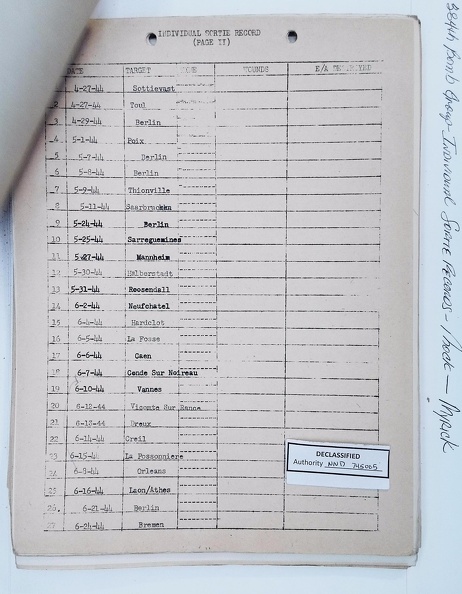 INDIVIDUAL SORTIE RECORD
(PAGE II)
DATE TARGET WOUNDS
4-27-44 Sottievast
2 4-27-44 Toul
3 4-29-44 Berlin
4 5-1-44 Poix
5 5-7-44 Berlin
6 5-8-44 Berlin
7 5-9-44 Thionville
8 5-11-44 Saarbrucken
9 5-24-44 Berlin
10 5-25-44 Sarreguemines
11 5-27-44 Mannheim
12 5-30-44 Halberstadt
13 5-31-44 Roosendall
14 6-2-44 Neufchatel
15 6-4-44 Hardelot
16 6-5-44 La Fosse
17 6-6-44 Caen
18 6-7-44 Conde Sur Noireau
19 6-10-44 Vannes
20 6-12-44 Vicomte Sur Rance
21 6-13-44 Dreux
22 6-14-44 Creil
23 6-15-44 La Possonniere
24 6-8-44 Orleans
25 6-16-44 Laon/Athes
26. 6-21-44 Berlin
27 6-24-44 Bremen
DECLASSIFIED
Authority NND 745005
384th Bomb Group-Individual Sortie Records - Myrick